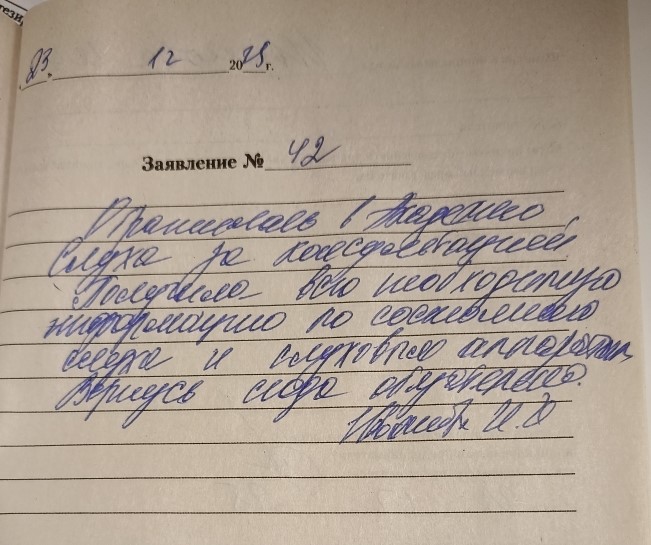 23. 12 2025 г.
Заявление № 42
Обратилась в Академию
Слуха за консультацией
Получила всю необходимую
информацию по состоянию
слуха и слуховым аппаратам,
Вернусь сюда обязательно.
И.О